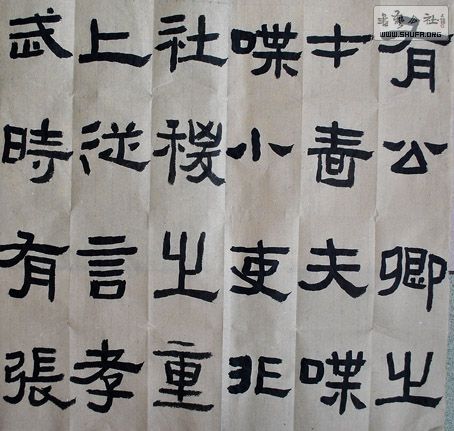 有公卿之
才嗇夫喋
喋小吏非
社稷之重
上從言孝
武時有張
書法公社
WWW.SHUFA.ORG